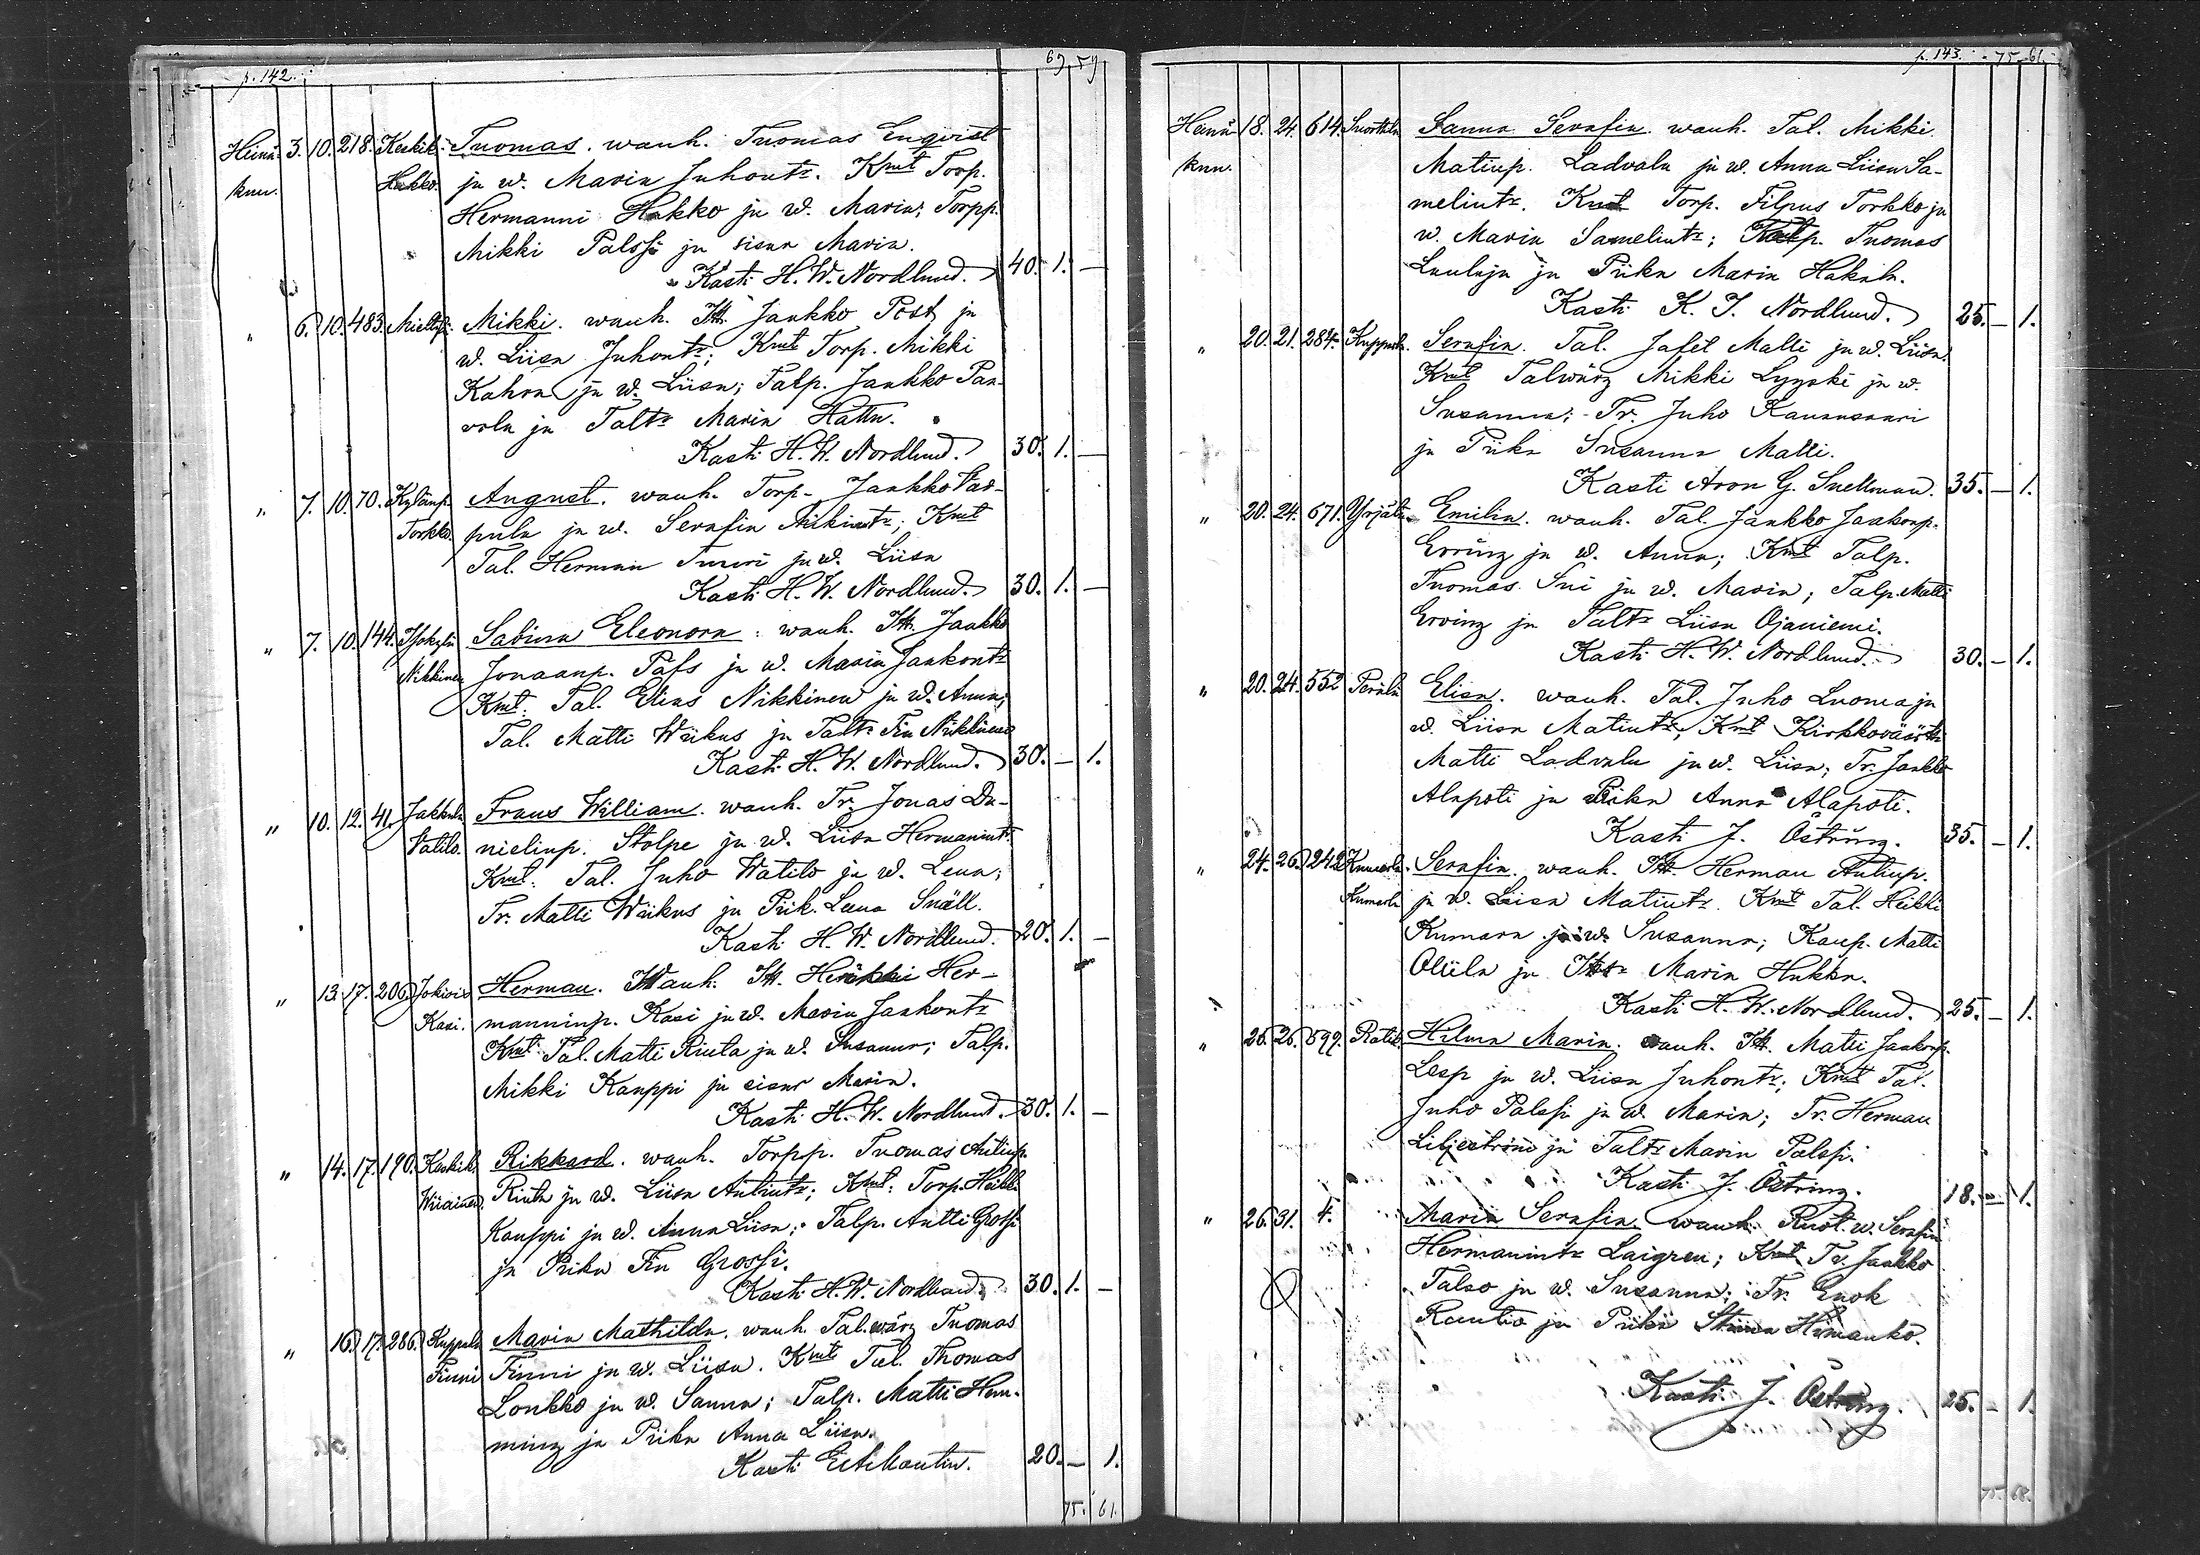 p. 142. 69. 59
Heinä- 3. 10. 218. Keskik. Tuomas. wanh. Tuomas Enqvist
kuu. Hakko. ja w. Maria Juhontr. Kmt Torp.
Hermanni Hakko ja w. Maria; Torpp.
Mikki Palssi ja sisar Maria.
Kasti H. W. Nordlund. 40. 1. —
„ 6. 10. 483. Mikki. wanh. Itt. Jaakko Post ja
w. Liisa Juhontr; Kmt Torp. Mikki
Kahra ja w. Liisa; Talp. Jaakko Pan-
vola ja Taltr Maria Hattu.
Kasti H. W. Nordlund. 30. 1. —
„ 7. 10. 70. Kylänp. August. wanh. Torp. Jaakko
Torkko. pula ja w. Serafia Mikintr; Kmt
Tal. Herman Tuuri ja w. Liisa
Kasti H. W. Nordlund. 30. 1. —
„ 7. 10. 144. Isokylä Sabina Eleonora. wanh. Itt. Jaakko
Nikkinen Jonaanp. Pafs ja w. Maria Jaakontr
Kmt. Tal. Elias Nikkinen ja w. Anna;
Tal. Matti Wiikus ja Taltr Fia Nikkinen
Kasti H. W. Nordlund. 30. — 1.
„ 10. 12. 41. Jakkula Frans William. wanh. Tr. Jonas Da-
Vatilo. nielinp. Stolpe ja w. Liisa Hermannintr.
Kmt. Tal. Juho Watilo ja w. Lena;
Tr. Matti Wiikus ja Piik. Lena Snäll.
Kasti H. W. Nordlund. 20. 1. —
„ 13. 17. 206. Jokisi Herman. Wanh. Itt. Heikki Her-
Kasi. manninp. Kasi ja w. Maria Jaakontr
Kmt Tal. Matti Riuta ja w. Susanna; Talp.
Mikki Kauppi ja sisar Maria.
Kasti H. W. Nordlund. 30. 1. —
„ 14. 17. 190. Keskik. Rikkard. wanh. Torpp. Tuomas Antinp.
Wiiainen. Riuta ja w. Liisa Antintr; Kmt: Torp. Heikki
Kauppi ja w. Anna Liisa; Talp. Antti Grossi
ja Piika Fia Grossi.
Kasti H. W. Nordlund. 30. 1. —
„ 16. 17. 286. Kuppala Maria Mathilda. wanh. Tal.wärg Tuomas
Finni Finni ja w. Liisa. Kmt Tal. Thomas
Lonkko ja w. Sanna; Talp. Matti Hem-
ming ja Piika Anna Liisa.
Kasti 20. — 1.
75. 61.
p. 143. 75. 61.
Heinä 18. 24. 614. Sanna Serafia. wanh. Tal. Mikki
kuu. Matinp. Ladvala ja w. Anna Liisa Sa-
melintr. Kmt Torp. Filpus Torkko ja
w. Maria Samelintr; Tuomas
Luuluja ja Piika Maria Hakala.
Kasti K. J. Nordlund. 25. — 1.
„ 20. 21. 284. Kuppala. Serafia. Tal. Jafet Matti ja w. Liisa.
Kmt Talwärg Mikki Lyyski ja w.
Susanna; Tr. Juho Kanansaari
ja Piika Susanna Matti.
Kasti Aron G. Snellman. 35. — 1.
„ 20. 24. 671. Yrjälä. Emilia. wanh. Tal. Jaakko Jaakonp.
Erving ja w. Anna; Kmt Talp.
Thomas Sui ja w. Maria; Talp. Matti
Erving ja Taltr Liisa Ojaniemi.
Kasti H. W. Nordlund. 30. — 1.
„ 20. 24. 552 Perälä Elisa. wanh. Tal. Juho Luoma ja
w. Liisa Matintr; Kmt Kirkkoväärti
Matti Ladvala ja w. Liisa; Tr. Jaakko
Alapoti ja Piika Anna Alapoti.
Kasti J. Östring. 35. — 1.
„ 24. 26. 242 Serafia. wanh. Itt. Herman Antinp.
Kumara ja w. Liisa Matintr. Kmt Tal. Heikki
Kumara ja w. Susanna; Kaup. Matti
Oliila ja Ittr Maria Hukka.
Kasti H. W. Nordlund. 25. — 1.
„ 26. 26. 599. Hilma Maria. wanh. Itt. Matti Jaakonp.
Lesp ja w. Liisa Juhontr; Kmt Tal.
Juho Palssi ja w. Maria; Tr. Herman
Liljeström ja Taltr Maria Palssi.
Kasti J. Östring. 18. — 1.
„ 26. 31. 4. Maria Serafia. wanh. w. Serafia
Hermannintr Laigren; Kmt Tr. Jaakko
Talso ja w. Susanna; Tr. Enok
Rautio ja Piika Stiina Himanko.
Kasti J. Östring. 25. — 1.
75. 68.